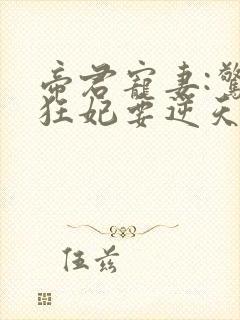 帝君寵妻:驚
狂妃要逆天
伍茲